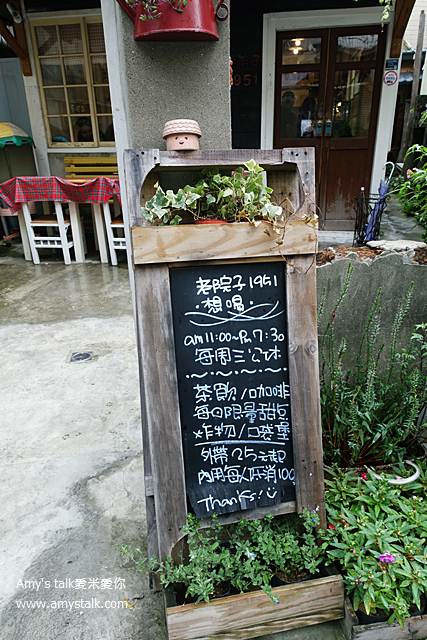 老院子1951
·想喝·
am11:00~Pm7:30
每周三公休
茶飲/咖啡
每日限量甜點
*炸物/口袋堡
外帶25元起
內用每人低消100
Thanks!
Amy's talk愛米愛你
www.amystalk.com
1951